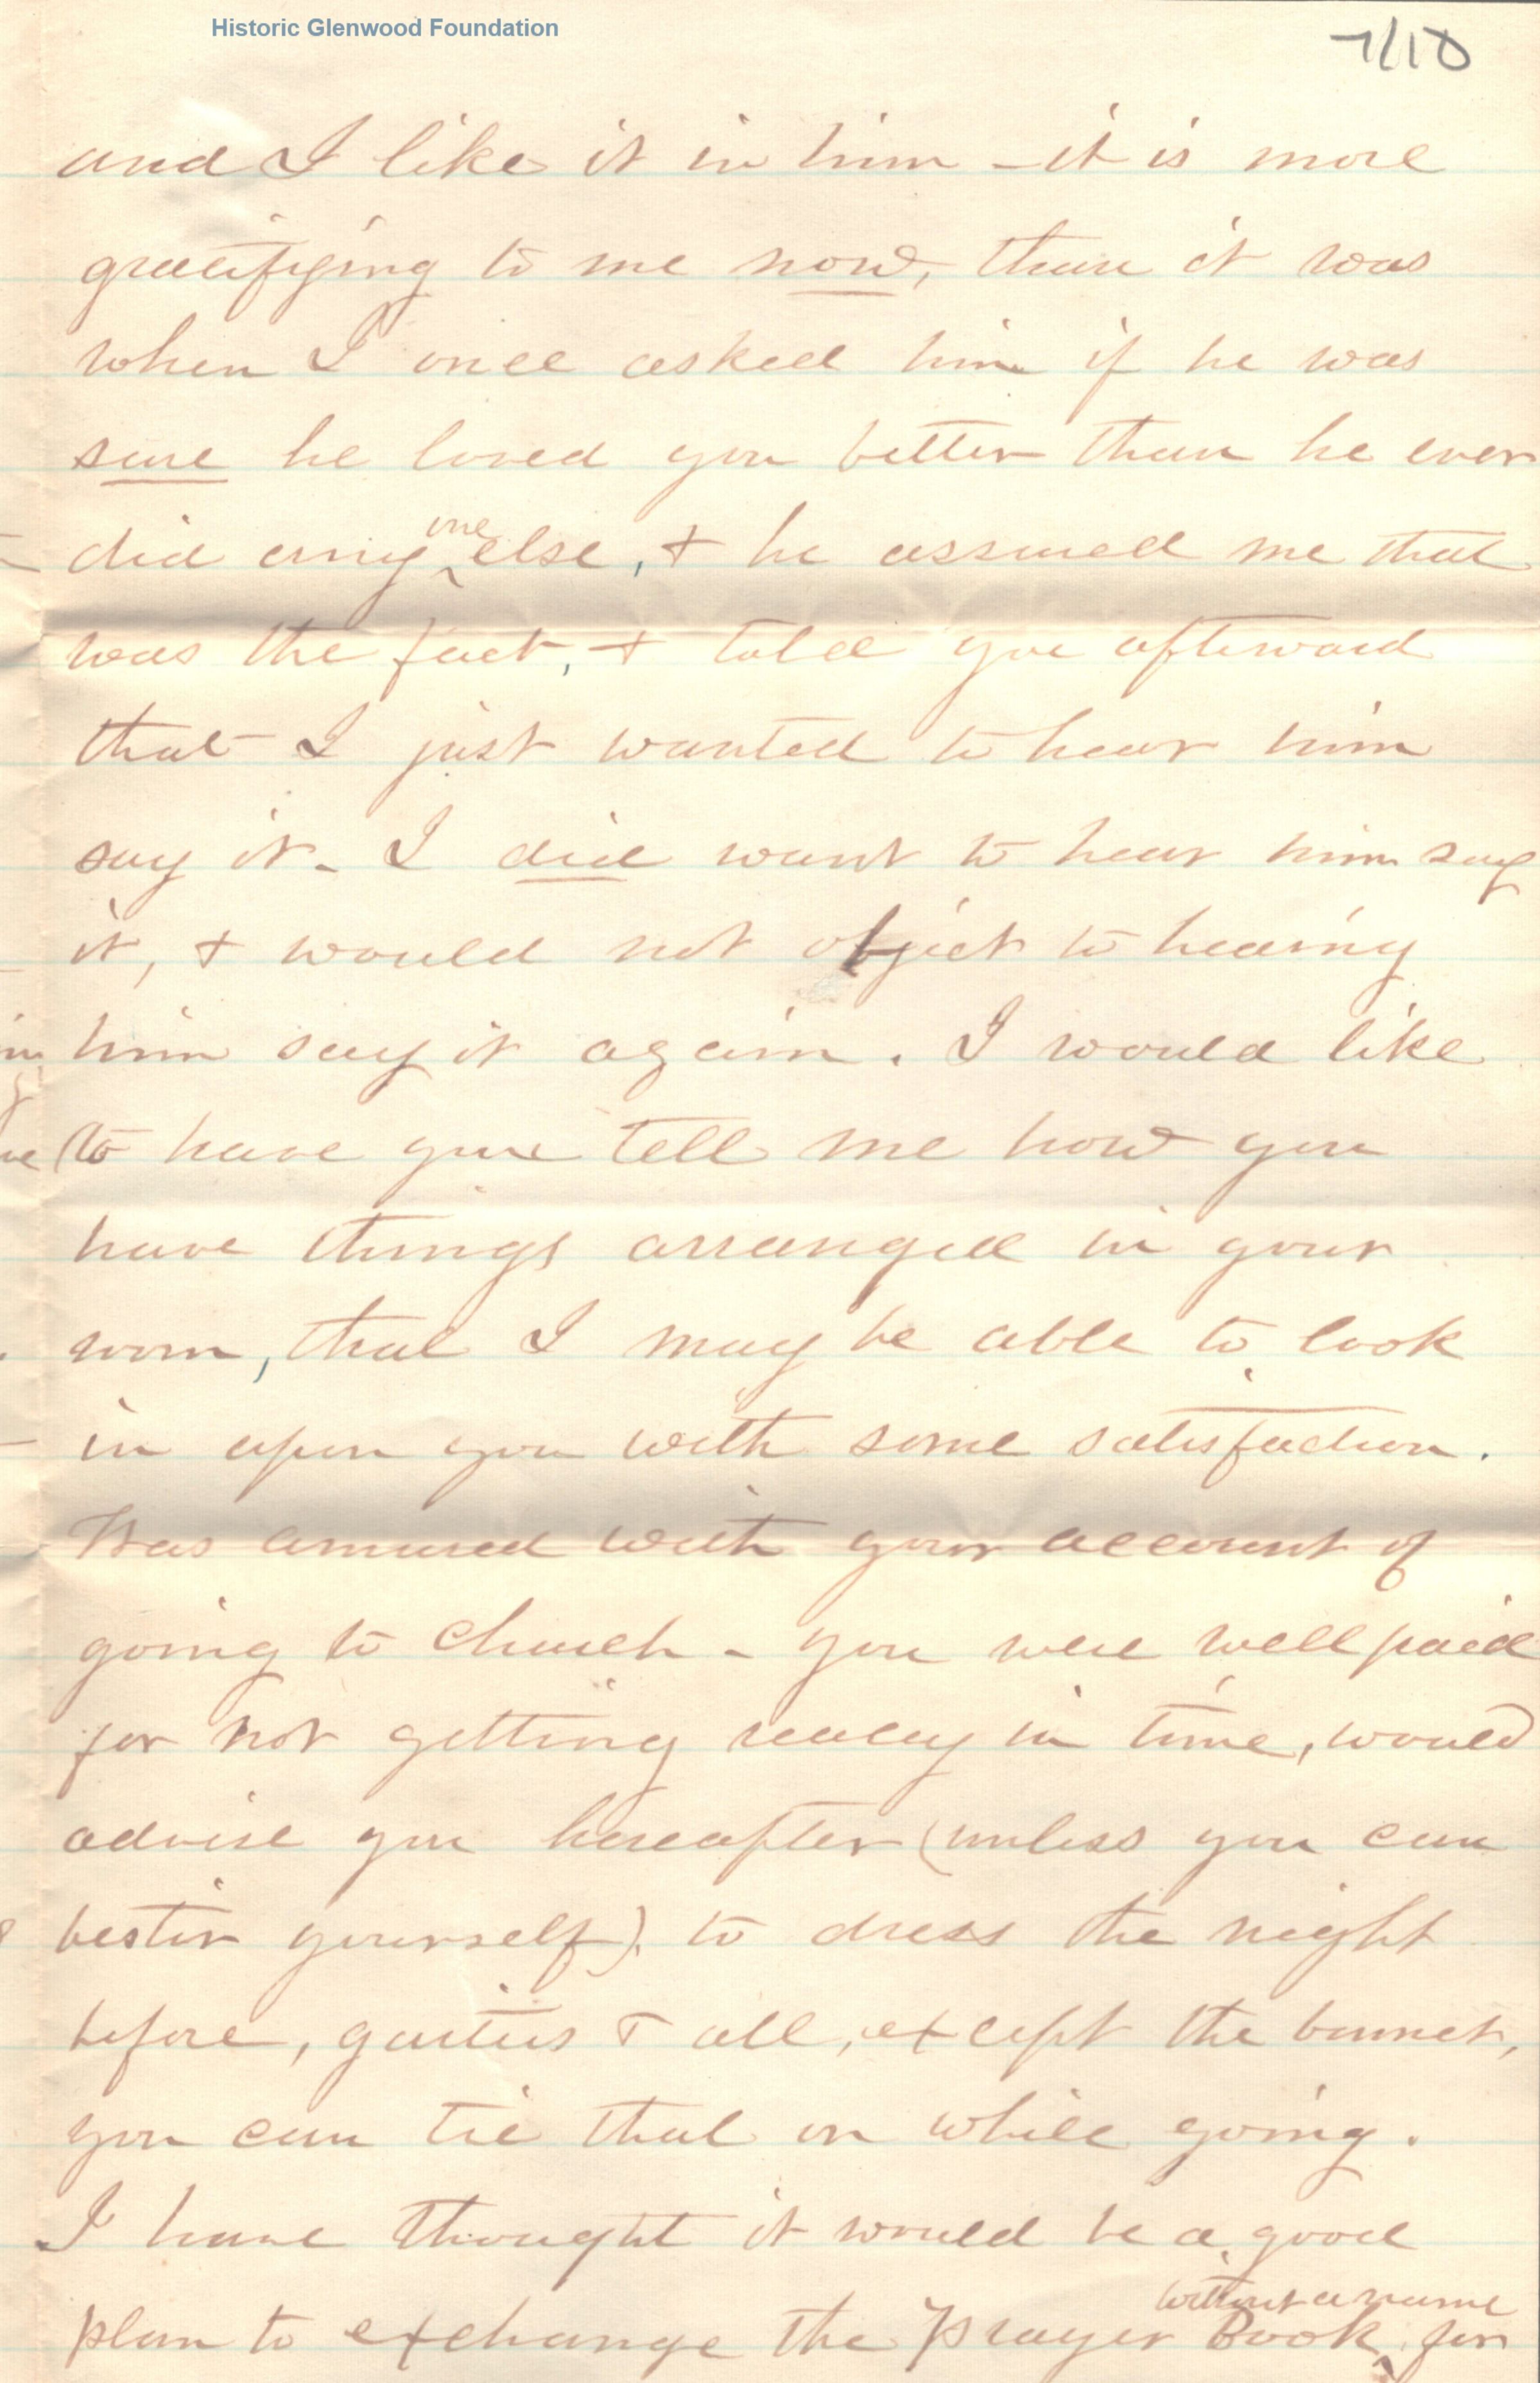 Historic Glenwood Foundation
7/10
and I like it in him - it is more
gratifying to me now, than it was
when I once asked him if he was
sure he loved you better than he ever
did any one else, + he assured me that
was the fact, + told you afterward
that I just wanted to hear him
say it - I did want to hear him say
it, + would not object to hearing
him say it again. I would like
to have you tell me how you
have things arranged in your
room, that I may be able to look
in upon you with some satisfaction.
Was amused with your account of
going to church - you were well paid
for not getting ready in time, would
advise you hereafter (unless you can
bestir yourself) to dress the night
before, gaiters + all, except the bonnet,
you can tie that on while going.
I have thought it would be a good
plan to exchange the Prayer Book without a name for